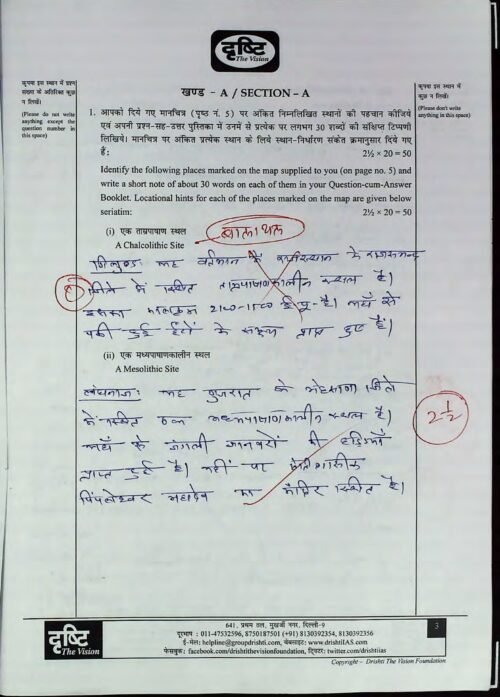 दृष्टि
The Vision
खण्ड - A / SECTION - A
कृपया इस स्थान में प्रश्न
संख्या के अतिरिक्त कुछ
न लिखें।
(Please do not write
anything except the
question number in
this space)
कृपया इस स्थान में
कुछ न लिखें।
(Please don't write
anything in this space)
1. आपको दिये गए मानचित्र (पृष्ठ नं. 5) पर अंकित निम्नलिखित स्थानों की पहचान कीजिये
एवं अपनी प्रश्न-सह-उत्तर पुस्तिका में उनमें से प्रत्येक पर लगभग 30 शब्दों की संक्षिप्त टिप्पणी
लिखिये। मानचित्र पर अंकित प्रत्येक स्थान के लिये स्थान-निर्धारण संकेत क्रमानुसार दिये गए
हैं: 2½ × 20 = 50
Identify the following places marked on the map supplied to you (on page no. 5) and
write a short note of about 30 words on each of them in your Question-cum-Answer
Booklet. Locational hints for each of the places marked on the map are given below
seriatim: 2½ × 20 = 50
(i) एक ताम्रपाषाण स्थल
बालाथल
A Chalcolithic Site
गिलुण्ड: यह वर्तमान के राजस्थान के राजसमन्द
जिले में स्थित ताम्रपाषाणकालीन स्थल है।
इसका कालक्रम 2100-1700 ई.पू. है। यहाँ से
पकी हुई ईंटों के साक्ष्य प्राप्त हुए हैं।
(ii) एक मध्यपाषाणकालीन स्थल
A Mesolithic Site
लांघनाज: यह गुजरात के मेहसाणा जिले
में स्थित एक मध्यपाषाणकालीन स्थल है।
यहाँ के जंगली जानवरों की हड्डियाँ
प्राप्त हुई है। यहीं पर
महादेव का मंदिर स्थित है।
2½
641, प्रथम तल, मुखर्जी नगर, दिल्ली-9
दूरभाष : 011-47532596, 8750187501 (+91) 8130392354, 8130392356
ई-मेल: helpline@groupdrishti.com, वेबसाइट: www.drishtiIAS.com
फेसबुक: facebook.com/drishtithevisionfoundation, ट्विटर: twitter.com/drishtiias
दृष्टि
The Vision
3
Copyright – Drishti The Vision Foundation